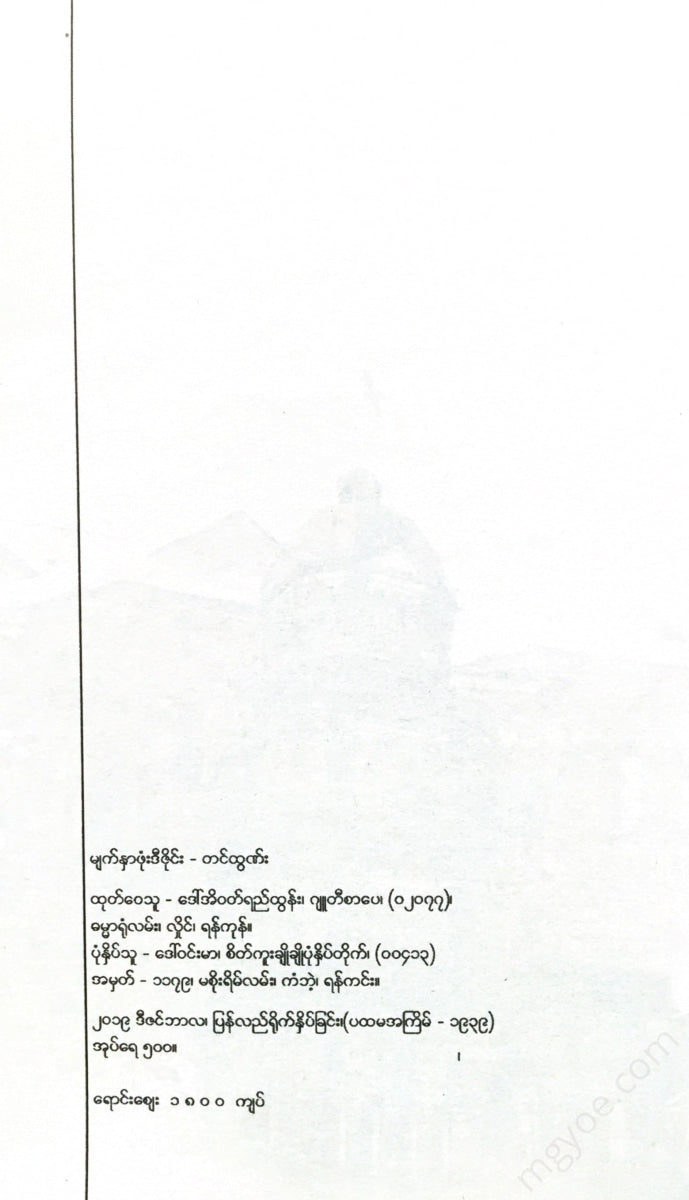 မျက်နှာဖုံးဒီဇိုင်း - တင်ထွဏ်း
ထုတ်ဝေသူ - ဒေါ်အိဝတ်ရည်ထွန်း၊ ဂျူတီစာပေ၊ (၀၂၀၇၇)၊
ဓမ္မာရုံလမ်း၊ လှိုင်၊ ရန်ကုန်။
ပုံနှိပ်သူ - ဒေါ်ဝင်းမာ၊ စိတ်ကူးချိုချိုပုံနှိပ်တိုက်၊ (၀၀၄၁၃)
အမှတ် - ၁၁၇၉၊ မစိုးရိမ်လမ်း၊ ကံဘဲ့၊ ရန်ကင်း။
၂၀၁၉ ဒီဇင်ဘာလ၊ ပြန်လည်ရိုက်နှိပ်ခြင်း၊(ပထမအကြိမ် - ၁၉၃၉)
အုပ်ရေ ၅၀၀။
ရောင်းဈေး ၁၈၀၀ ကျပ်
mgyoe.com